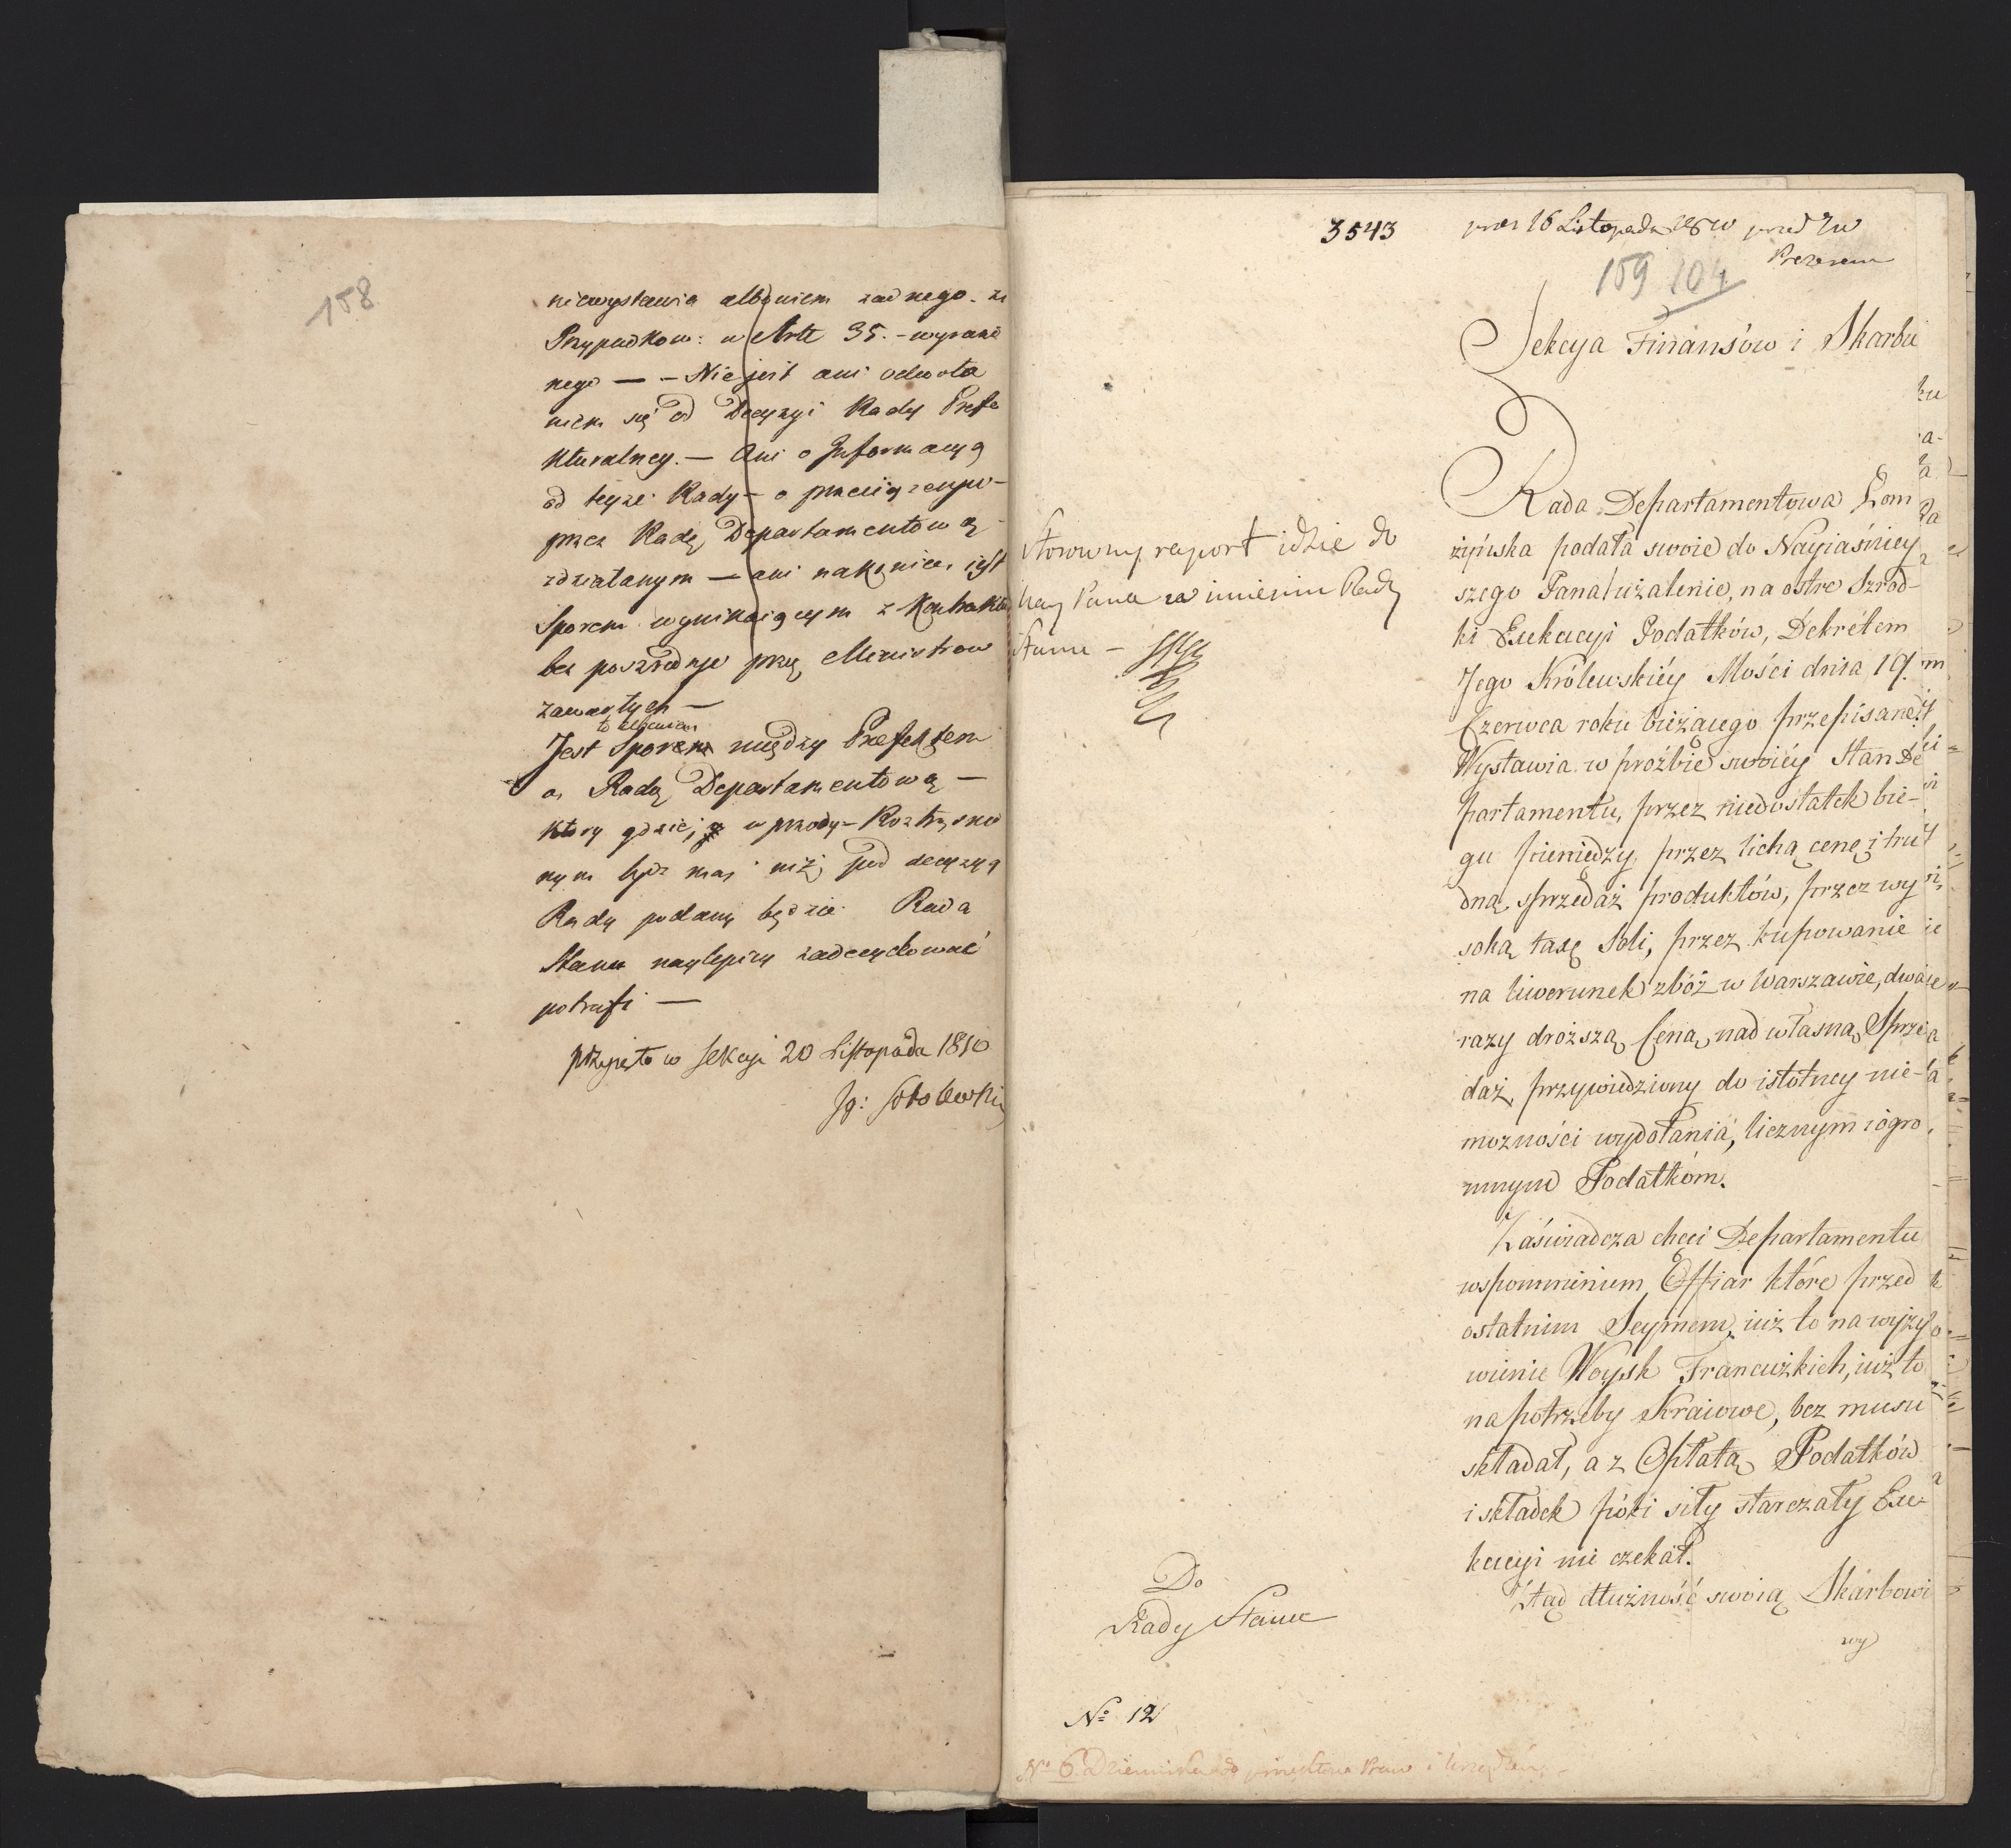 158
niewystawia albowiem żadnego z
Przypadkow: w Arte 35. - wyrażo
nego — - Nie jest ani odwoła
niem się od Decyzyi Rady Prefe
kturalney. — Ani o Informacyą
od teyże Rady — o
przez Radę Departamentową
zdziałanym — ani nakoniec jest
Sporem wynikaiącym z Kontraktu
bezposzrednie przez Ministrow
zawartych —
to albowiem
Jest Sporem między Prefektem
a Radą Departamentową —
ktory gdzie w przody - Roztrząsnio
nym bydź ma, niż pod decyzyą
Rady podany będzie Rada
Stanu naylepiey zadecydować
potrafi —
przyięto w Sekcyi 20 Listopada 1810
Ig: Sobolewski
3543
pres 16 Listopada 1810 przed JW
Prezesem
159 104
Sekcya Finansów i Skarbu
Rada Departamentowa Łom
żyńska podała swoie do Nayiaśniey
szego Pana użalenie, na ostre Szrod-
ki Exekucyi Podatków, Dekretem
Jego Królewskiéy Mości dnia 19.
Czerwca roku bieżącego przepisane.
Wystawia w proźbie swoiéy Stan De
partamentu, przez niedostatek bie-
gu pieniędzy, przez lichą cenę i tru
dną sprzedaż produktów, przez wy
soką taxę Soli, przez kupowanie
na liwerunek zbóż w Warszawie, dwa
razy droższą Ceną, nad własną Sprze
daż, przywiedziony do istotney nie-
możności wydołania, licznym i ogro
mnym Podatkóm.
Zaświadcza chęci Departamentu
wspomnieniem Offiar które przed
ostatnim Seymem, iuż to na wyży
wienie Woysk Francuzkich, iuż to
na potrzeby Kraiowe, bez musu
składał, a z Opłatą Podatków
i składek póki siły starczały Exe-
kucyi nie czekał.
Stąd dłużność swoią Skarbowi
wy
Stosowny raport idzie do
Nay Pana w imieniu Rady
Stanu —
Do
Rady Stanu
No 12
No 6 Dziennika